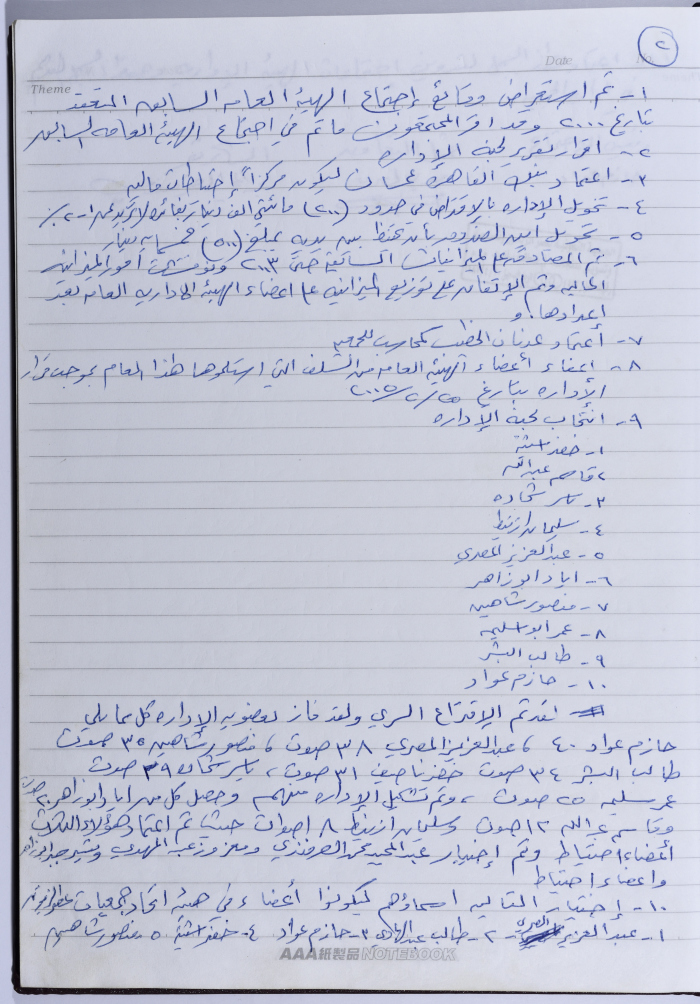 ٢
Theme
Date
No.
١- تم استعراض وقائع إجتماع الهيئة العامة السابق المنعقد
بتاريخ ٢٠٠٠ وقد اقر المجتمعون ما تم في اجتماع الهيئة العامة السابق
٢- اقرار تقرير لجنة الإدارة
٣- اعتماد بنك القاهرة عمان ليكون مركزاً إحتياطات مالية
٤- تخويل الإدارة بالإقتراض في حدود (٢٠٠) مائتي الف دينار بفائدة لا تزيد عن ١-٢٪
٥- تخويل امين الصندوق بان يحتفظ بين يديه بمبلغ (٥٠٠) خمسمائة دينار
٦- تم المصادقة على الميزانيات السابقة حتى ٢٠٠٣ ونوقشت أمور الميزانية
المالية وتم الإتفاق على توزيع الميزانية على اعضاء الهيئة الإدارية العامة بعد
إعدادها.
٧- اعتماد عدنان الخطيب كمحاسب للجمعية
٨- اعفاء أعضاء الهيئة العامة من السلف التي استلموها هذا العام بموجب قرار
الأدارة بتاريخ ٢٥/٢/٢٠٠٥
٩- انتخاب لجنة الإدارة
١- خضر
٢- قاسم عبدالله
٣- ياسر شحاده
٤- سليمان ازنيط
٥- عبدالعزيز المصري
٦- اياد ابو زاهر
٧- منصور شاهين
٨- عمر ابو سليمه
٩- طالب البشر
١٠- حازم عواد
لقد تم الإقتراع السري ولقد فاز لعضوية الإدارة كل مما يلي
حازم عواد ٤٠، عبدالعزيز المصري ٣٨ صوت، منصور شاهين ٣٥ صوت
طالب البشر ٣٤ صوت خضر ناصيف ٣١ صوت، ياسر شحاده ٣٩ صوت
عمر سليمه ٢٥ صوت، وتم تشكيل الإدارة منهم وحصل كل من اياد ابو زاهر ٢٠ صوت
وقاسم عبدالله ١٢ صوت وسليمان ازنيط ٨ اصوات حيث تم اعتماد هؤلاء الثلاث
أعضاء احتياط وتم إختيار عبدالمجيد محمد ومعزوز عبد المهدي
واعضاء احتياط
١٠- إختيار التالية اسماؤهم ليكونوا أعضاء في هيئة اتحاد جمعيات
١- عبدالعزيز المصري ٢- طالب عبدالهادي ٣- حازم عواد ٤- خضر ٥- منصور شاهين
AAA紙製品 NOTEBOOK